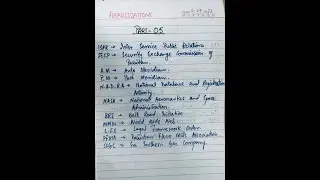 ABBREVIATIONS
PART-05
ISPR → Inter Service Public Relations
SECP → Security Exchange Commission of
Pakistan.
A.M → Ante Meridiem.
P.M → Post Meridiem.
N.A.D.R.A → National Database and Registration
Authority
NASA → National Aeronautics and Space
Administration
BRI → Belt Road Initiative
WWW → World Wide Web.
L.F.O → Legal Framework Order
PFMA → Pakistan Flour Mills Association
SSGC → Sui Southern Gas Company.